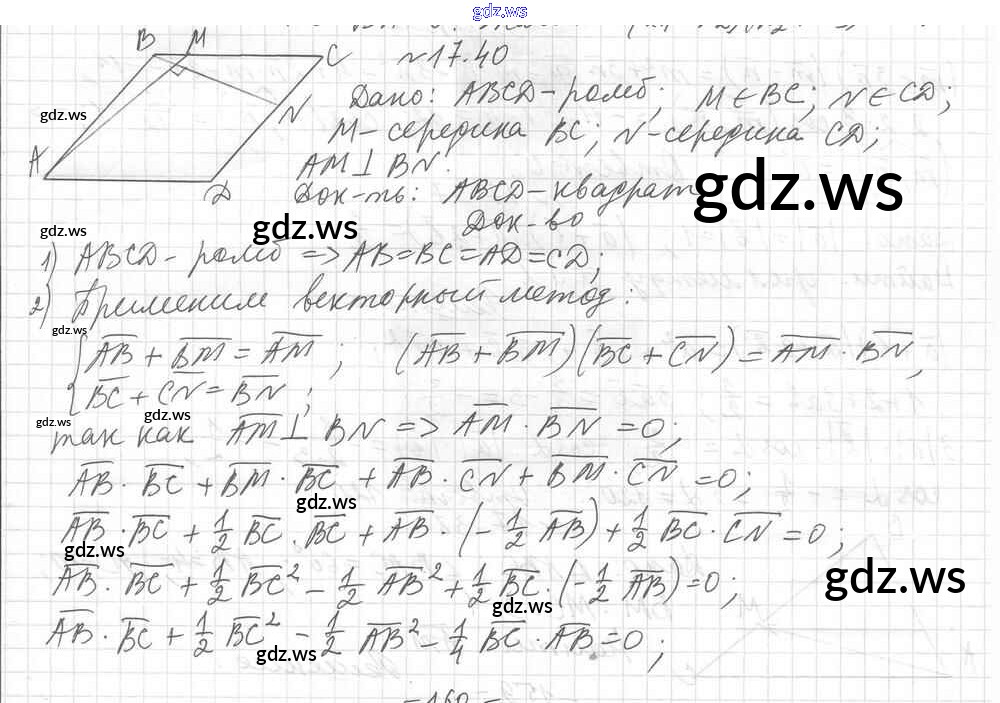 gdz.ws
№17.40
B M C
N
A
D
Дано: ABCD-ромб; M∈BC; N∈CD;
M-середина BC; N-середина CD;
AM⊥BN.
Док-ть: ABCD-квадрат
Док-во
1) ABCD-ромб => AB=BC=AD=CD;
2) Применим векторный метод:
{ \overline{AB} + \overline{BM} = \overline{AM} ; (\overline{AB} + \overline{BM})(\overline{BC} + \overline{CN}) = \overline{AM} · \overline{BN},
\overline{BC} + \overline{CN} = \overline{BN} ;
так как \overline{AM} ⊥ \overline{BN} => \overline{AM} · \overline{BN} = 0;
\overline{AB} · \overline{BC} + \overline{BM} · \overline{BC} + \overline{AB} · \overline{CN} + \overline{BM} · \overline{CN} = 0;
\overline{AB} · \overline{BC} + 1/2 \overline{BC} · \overline{BC} + \overline{AB} · (-1/2 \overline{AB}) + 1/2 \overline{BC} · \overline{CN} = 0;
\overline{AB} · \overline{BC} + 1/2 \overline{BC}² - 1/2 \overline{AB}² + 1/2 \overline{BC} · (-1/2 \overline{AB}) = 0;
\overline{AB} · \overline{BC} + 1/2 \overline{BC}² - 1/2 \overline{AB}² - 1/4 \overline{BC} · \overline{AB} = 0;
gdz.ws
gdz.ws
gdz.ws
gdz.ws
gdz.ws
gdz.ws
gdz.ws
gdz.ws
gdz.ws
gdz.ws
gdz.ws
gdz.ws
gdz.ws